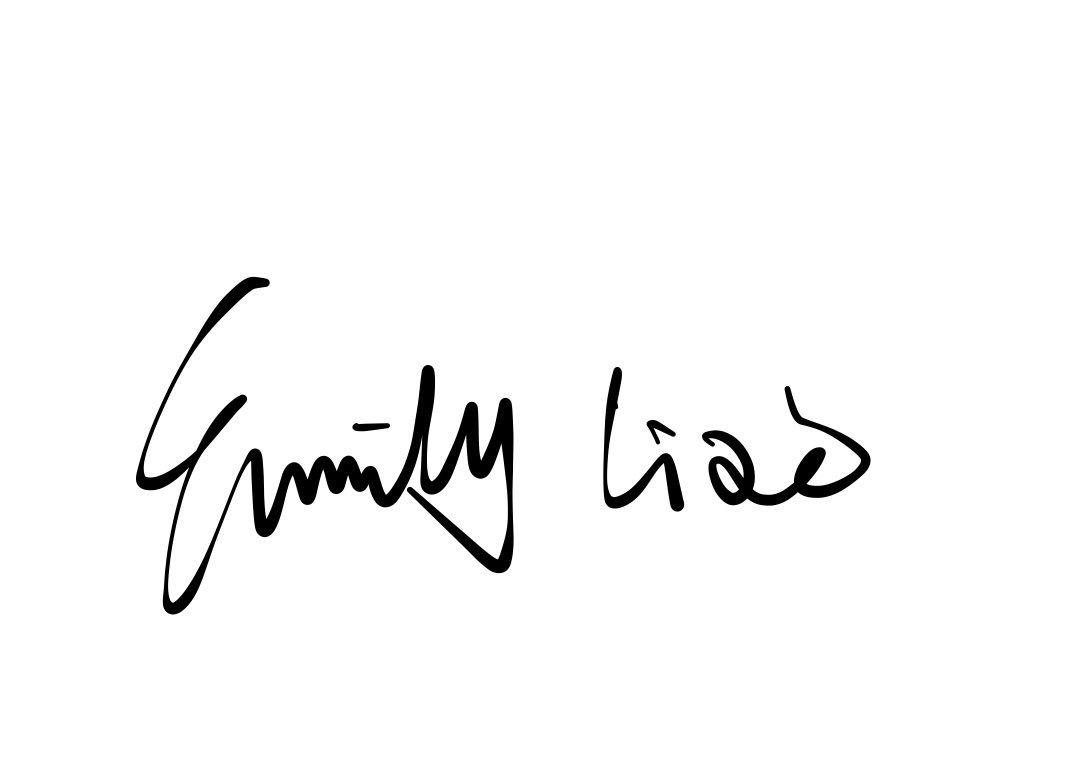 Emily Liao